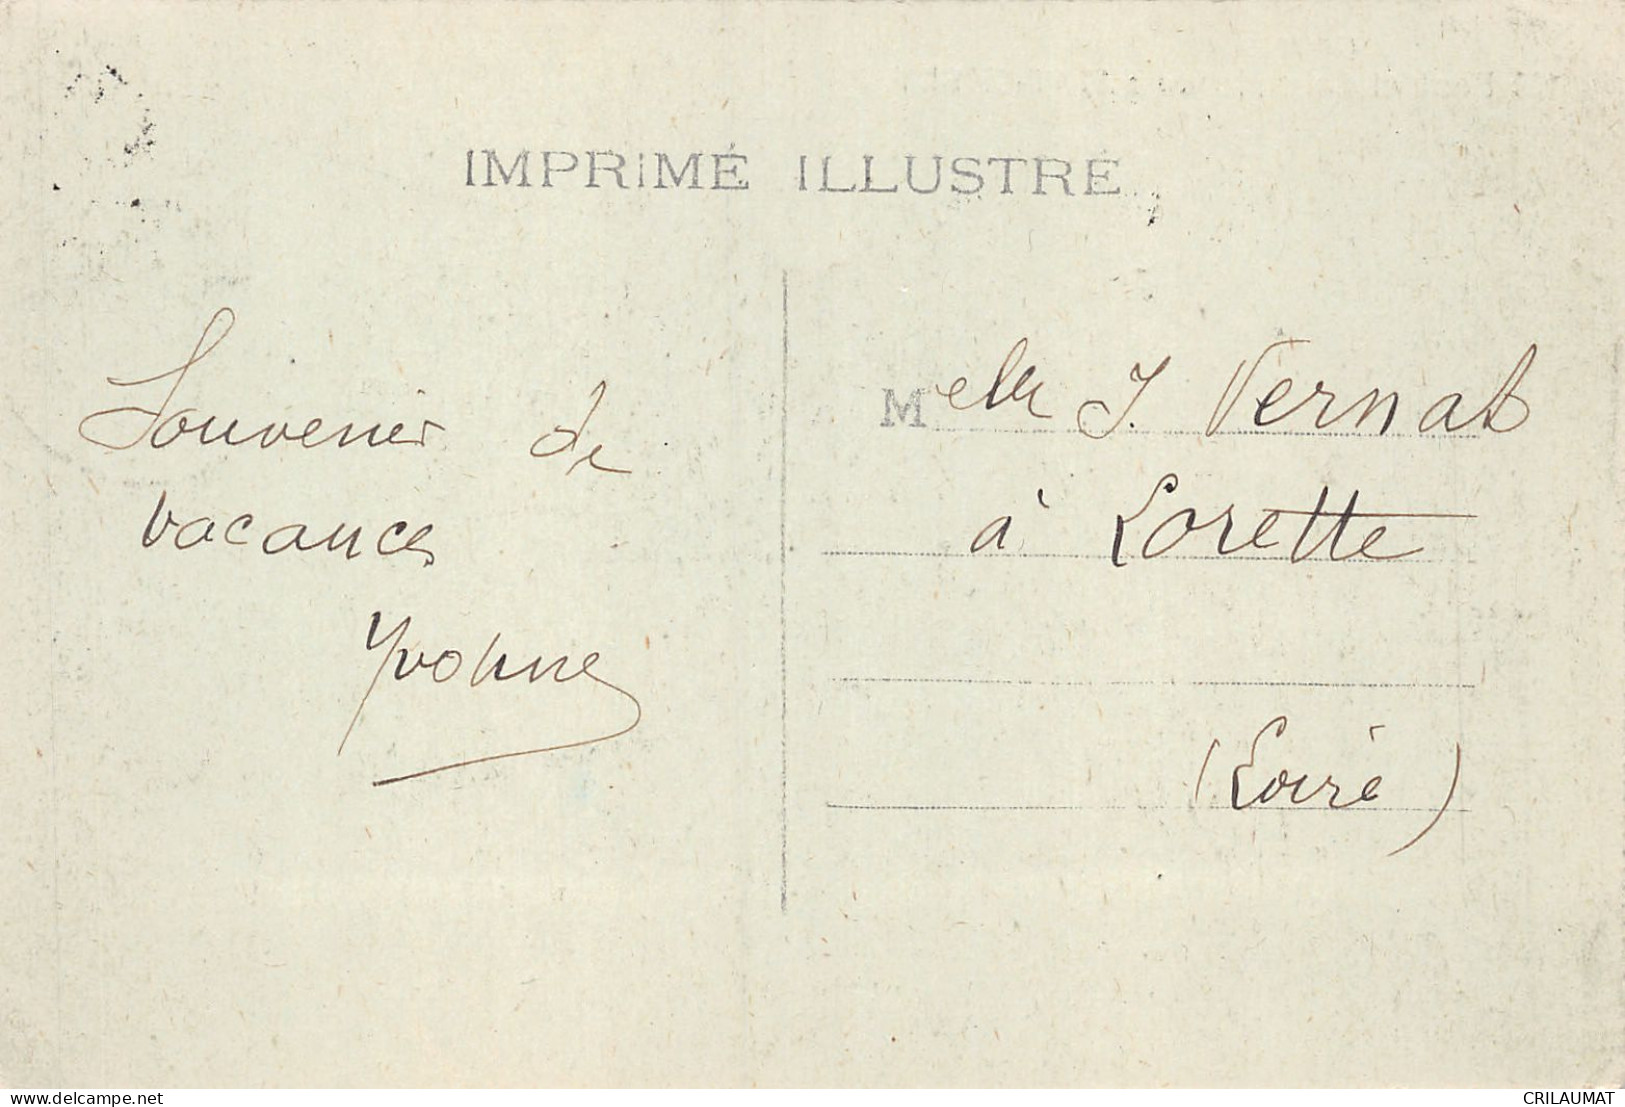 IMPRIMÉ ILLUSTRÉ
Souvenir de
vacances
Yvonne
Melle J. Vernat
à Lorette
(Loire)
delcampe.net
CRILAUMAT